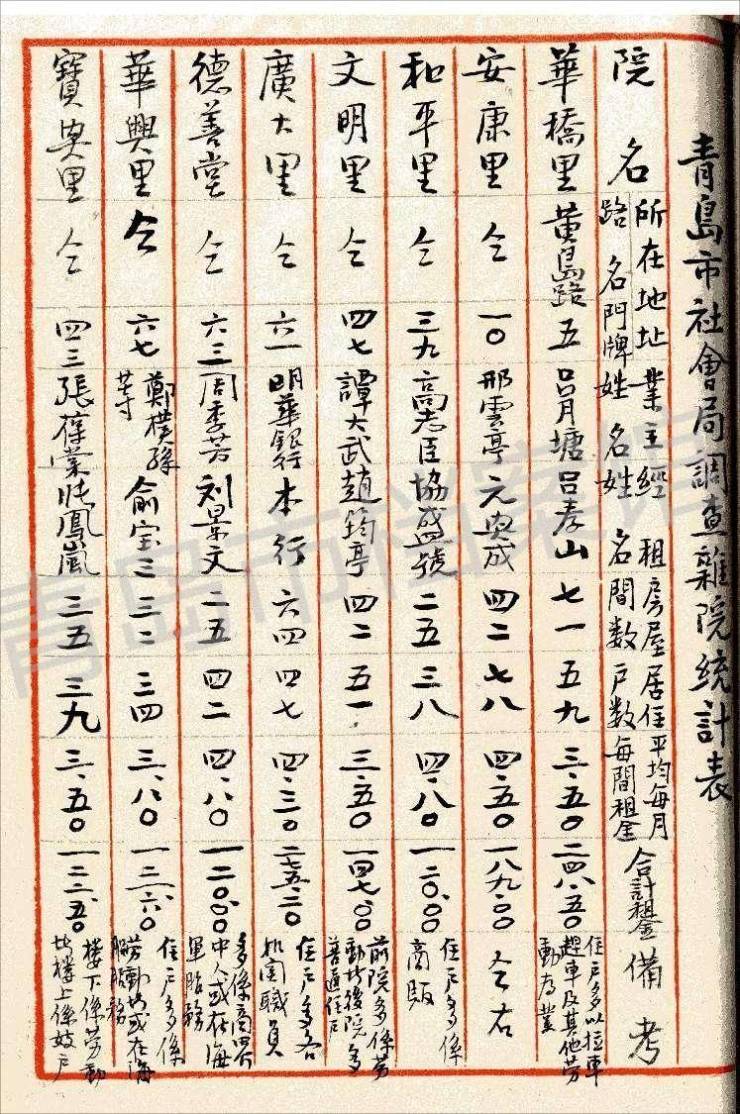 青島市社會局調查雜院統計表
院名 所在地址 路名 門牌 業主 姓名 經租 姓名 房屋間数 居住户数 平均每月每間租金 合計租金 備考
華橋里 黄島路 五 吕月塘 吕孝山 七一 五九 三.五〇 二四八.五〇 住户多以拉車趕車及其他劳動为業
安康里 仝 一〇 邢雲亭 元興成 四二 七八 四.五〇 一八九.〇〇 仝右
和平里 仝 三九 高志臣 協盛號 二五 三八 四.八〇 一二〇.〇〇 住户多係商販
文明里 仝 四七 譚大武 趙筠亭 四二 五一 三.五〇 一四七.〇〇 前院多係劳動者後院多普通住户
廣大里 仝 六一 明華銀行 本行 六四 四七 四.三〇 二七五.二〇 住户多各机関職員
德善堂 仝 六三 周季芳 刘景文 二五 四二 四.八〇 一二〇.〇〇 多係商界中人或在海軍服務
華興里 仝 六七 鄭樸孫等 俞宝三 三二 三四 三.八〇 一三六.〇 住户多係劳動者或在海服務
寶興里 仝 四三 張葆棠 張鳳嵐 三五 三九 三.五〇 一二二.五〇 楼下係劳動者楼上係妓户
青岛市档案馆